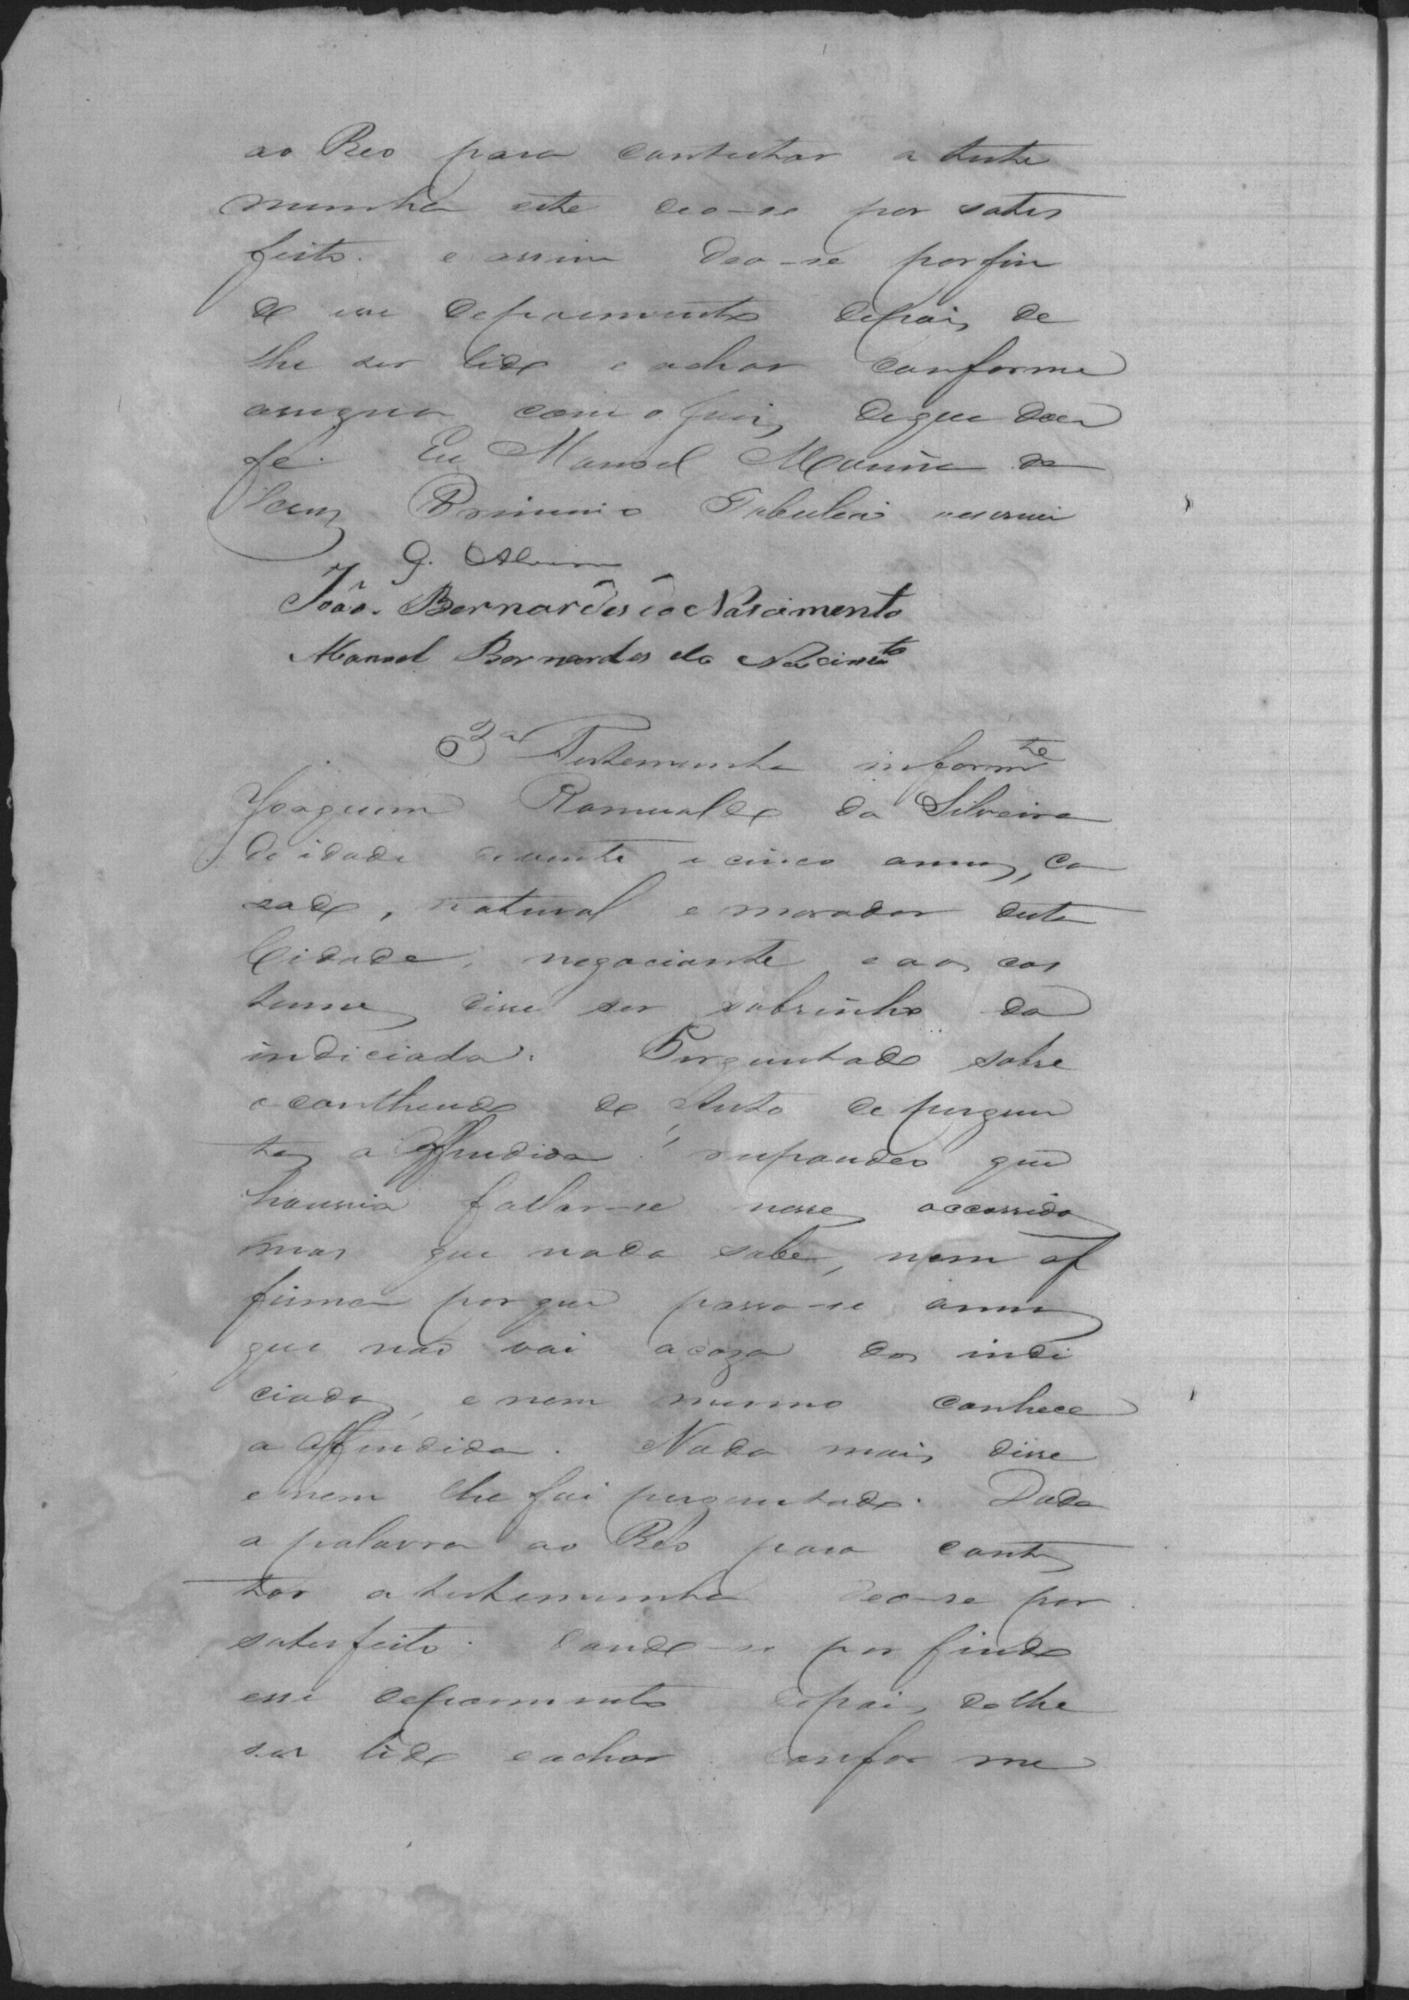 ao Reo para contestar a teste
munha este deo-se por satis
feito. e assim deo-se por fin
do esse depoimento depois de
lhe ser lido e achar conforme
assigna com o Juiz, de que dou
fé. Eu Manoel Maria da
Primeiro Tabelião escrevi
G. Alvim
João Bernardes do Nascimento
Manoel Bernardes do Nascimto
3a Testemunha informte
Joaquim Romualdo da Silveira
de idade de vinte e cinco annos, ca
sado, natural e morador desta
Cidade, negociante e aos cos
tumes disse ser sobrinho da
indiciada. Perguntado sobre
o contheudo do Auto de pergun
tas a offendida, respondeo que
houvia fallar-se nesse occorrido
mas que nada sabe, nem af
firma porque passa-se annos
que não vai a caza dos indi
ciados, e nem mesmo conhece
a offendida. Nada mais disse
e nem lhe foi perguntado. Dada
a palavra ao Reo para contes
tar a testemunha deo-se por
satisfeito. dando-se por findo
esse depoimento depois de lhe
ser lido e achar conforme